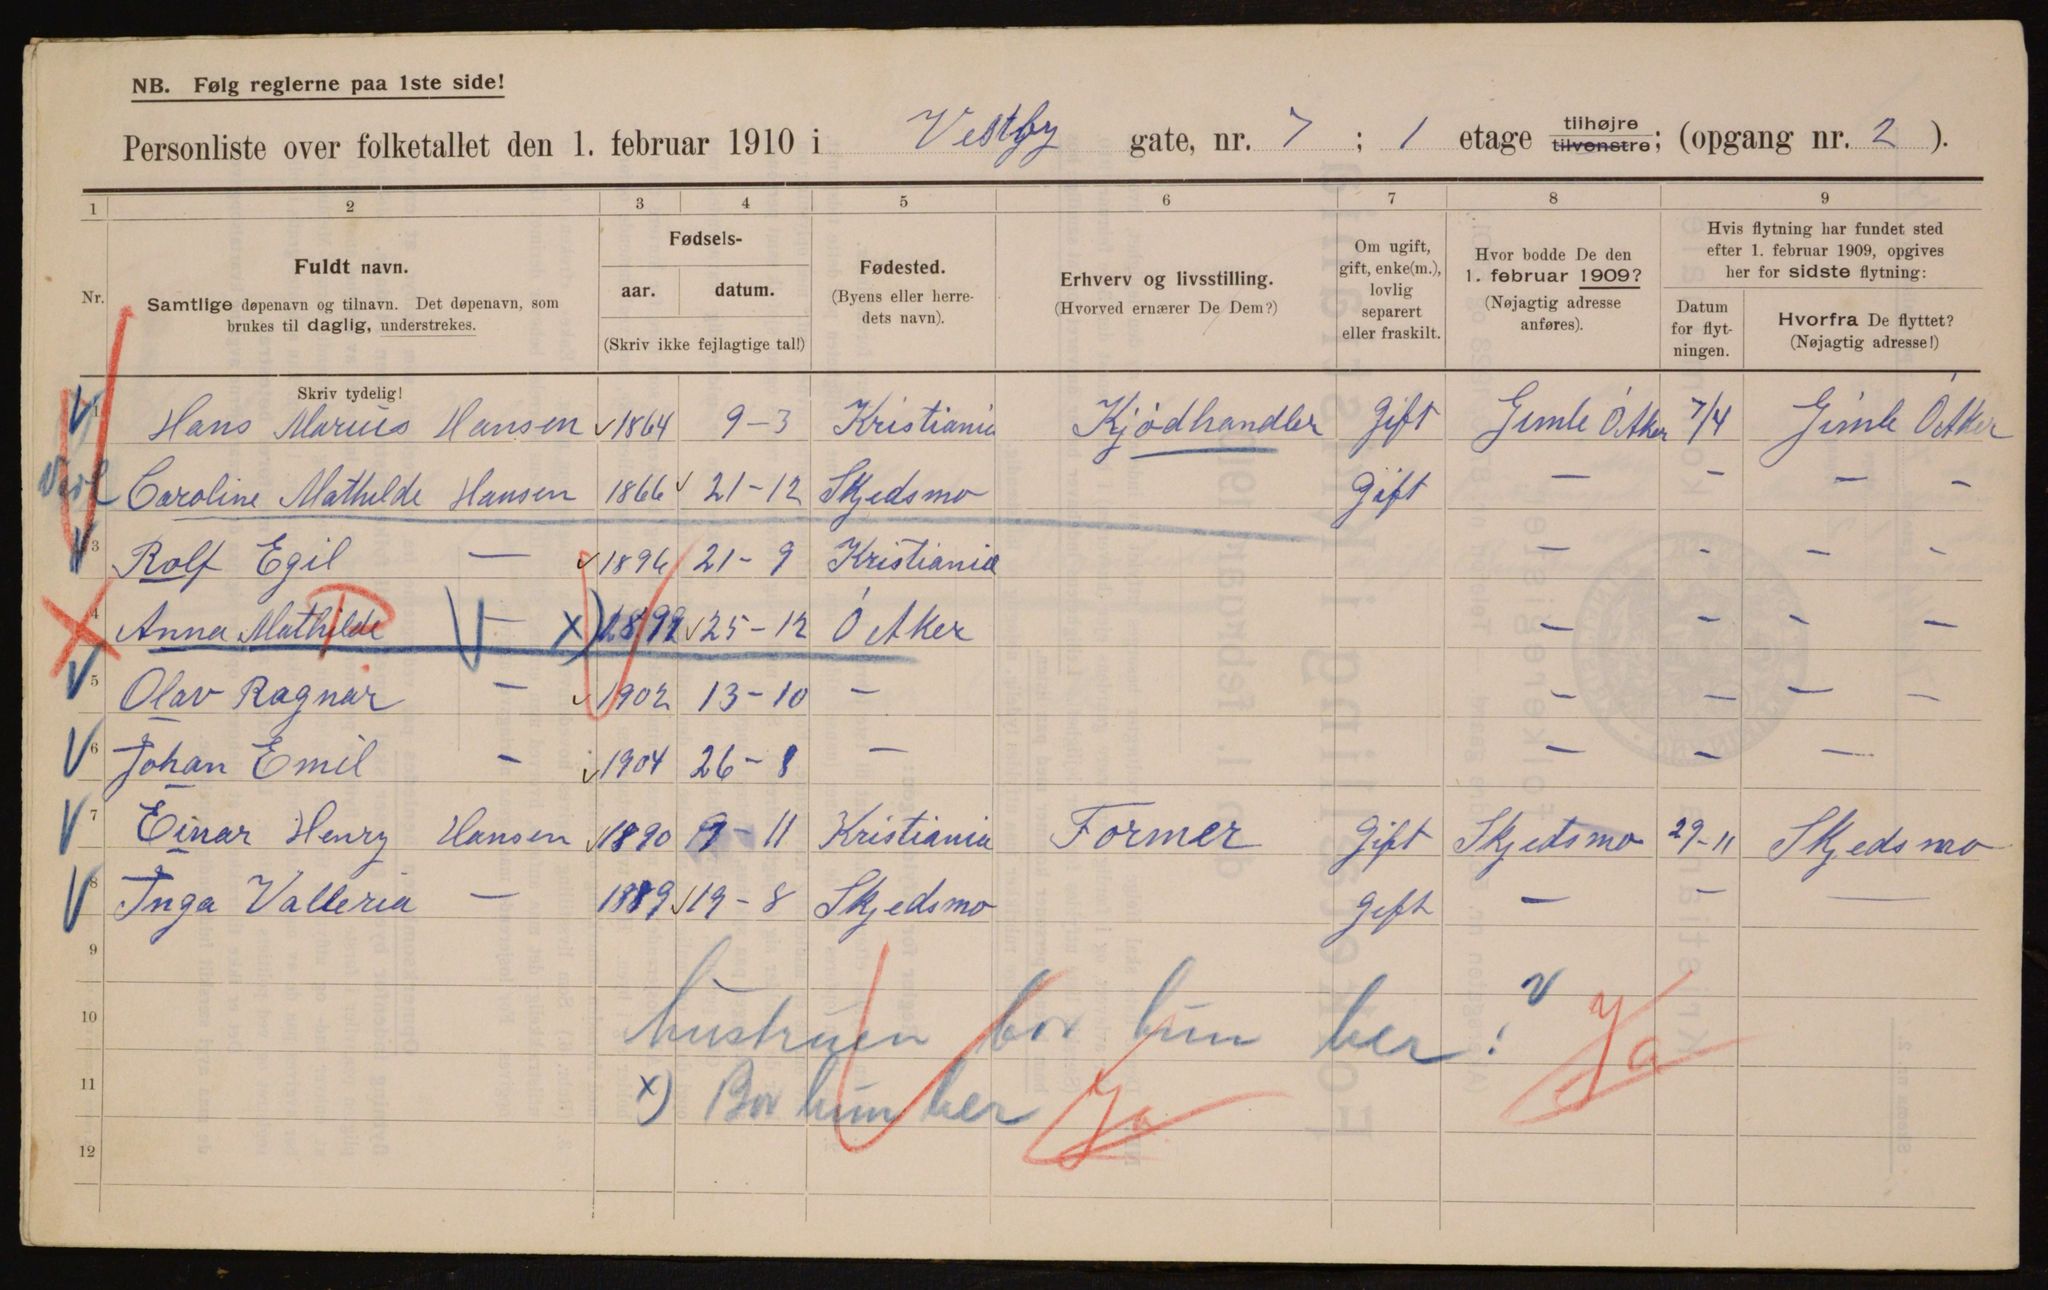 NB. Følg reglerne paa 1ste side!
Personliste over folketallet den 1. februar 1910 i Vestby gate, nr. 7; 1 etage tilhøjre tilvenstre; (opgang nr. 2).
1 2 3 4 5 6 7 8 9
Nr.
Fuldt navn.
Samtlige døpenavn og tilnavn. Det døpenavn, som
brukes til daglig, understrekes.
Skriv tydelig!
Fødsels-
aar. datum.
(Skriv ikke fejlagtige tal!)
Fødested.
(Byens eller herre-
dets navn).
Erhverv og livsstilling.
(Hvorved ernærer De Dem?)
Om ugift,
gift, enke(m.),
lovlig
separert
eller fraskilt.
Hvor bodde De den
1. februar 1909?
(Nøjagtig adresse
anføres).
Hvis flytning har fundet sted
efter 1. februar 1909, opgives
her for sidste flytning:
Datum
for flyt-
ningen.
Hvorfra De flyttet?
(Nøjagtig adresse!)
1 Hans Marius Hansen 1864 9-3 Kristiania Kjødhandler Gift Gimle Ö Aker 7/4 Gimle Ö Aker
Caroline Mathilde Hansen 1866 21-12 Skjedsmo Gift — — — —
3 Rolf Egil — 1896 21-9 Kristiania — - - -
4 Anna Mathilde — x) 1899 25-12 Ö Aker — — — —
5 Olav Ragnar — 1902 13-10 — — — — —
6 Johan Emil - 1904 26-8 — — — —
7 Einar Henry Hansen 1890 9-11 Kristiania Former Gift Skjedsmo 29-11 Skjedsmo
8 Inga Valleria — 1889 19-8 Skjedsmo Gift — — —
9
10 hustruen bor hun her? Ja
11 x) Bor hun her Ja
12